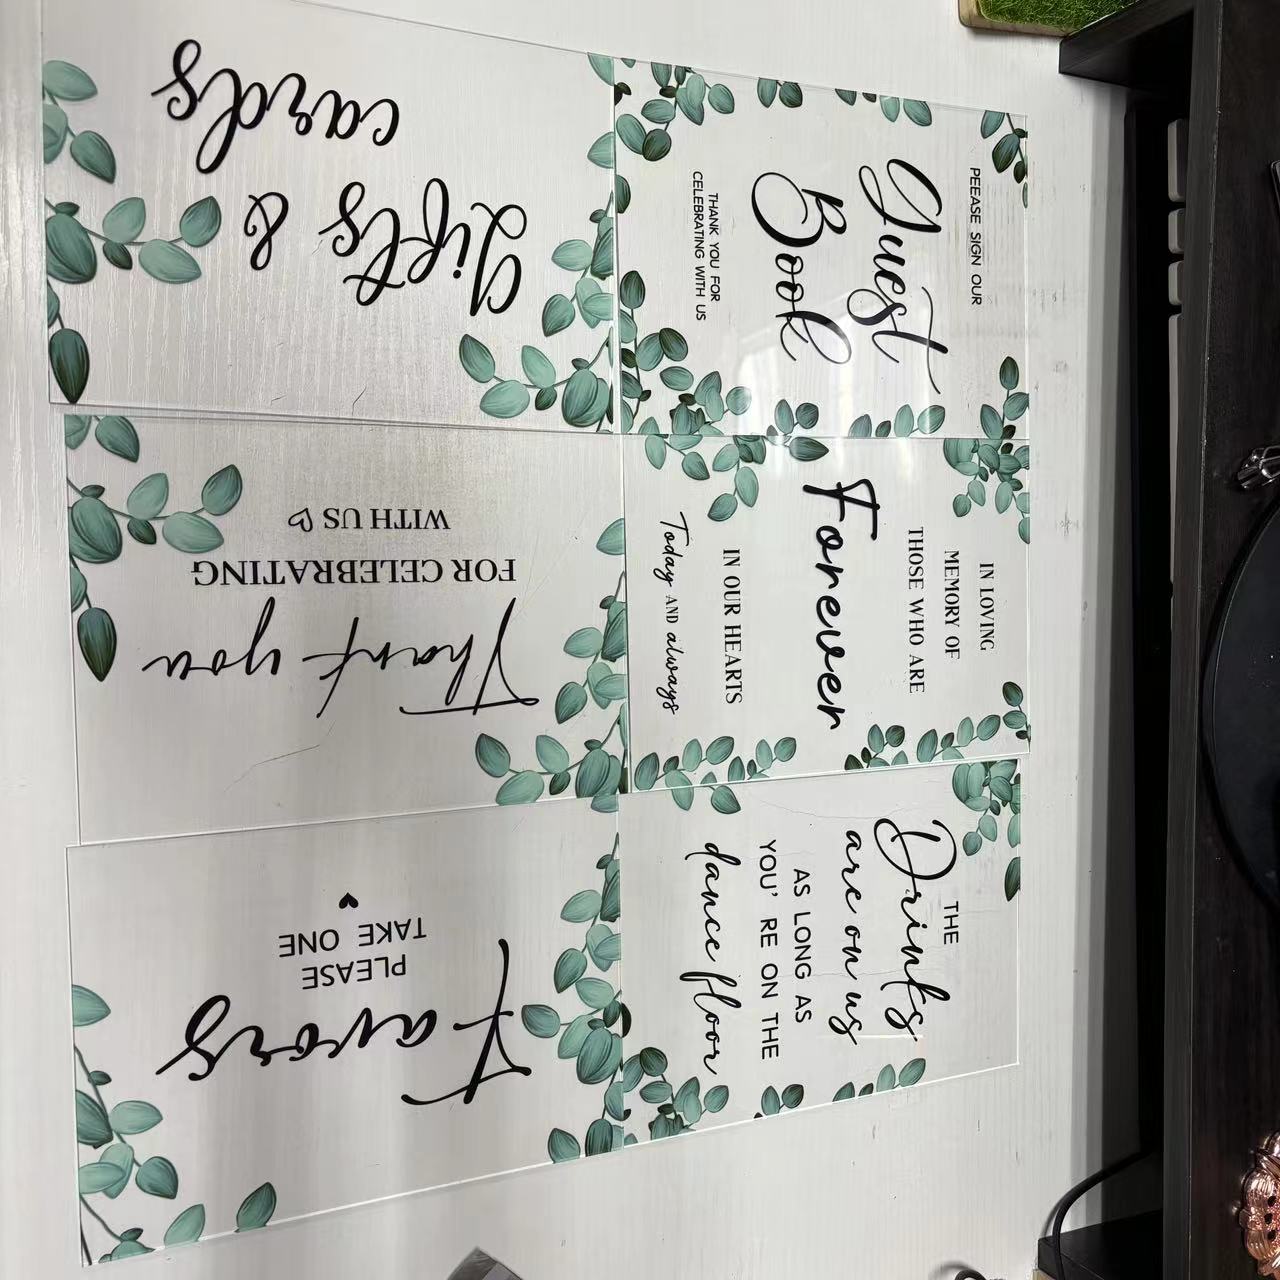 Gifts &
cards
PEEASE SIGN OUR
Guest
Book
THANK YOU FOR
CELEBRATING WITH US
Thank you
FOR CELEBRATING
WITH US ♡
IN LOVING
MEMORY OF
THOSE WHO ARE
Forever
IN OUR HEARTS
Today AND always
Favors
PLEASE
TAKE ONE
♥
THE
Drinks
are on us
AS LONG AS
YOU' RE ON THE
dance floor